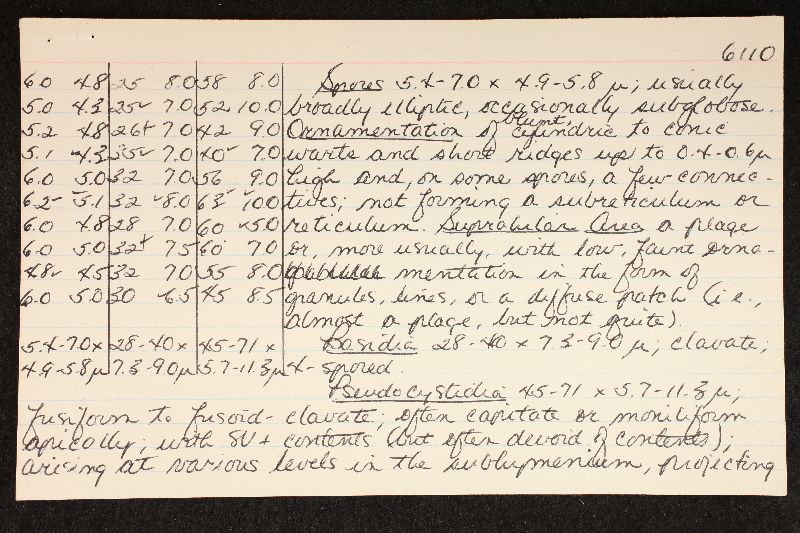 6110
6.0 4.8 25 8.0 58 8.0 Spores 5.4-7.0 x 4.9-5.8 µ; usually
5.0 4.3 25 7.0 52 10.0 broadly elliptic, occasionally subglobose.
5.2 4.8 26 7.0 42 9.0 Ornamentation of blunt, cylindric to conic
5.1 4.3 35 7.0 40 7.0 warts and short ridges up to 0.4-0.6µ
6.0 5.0 32 7.0 56 9.0 high and, on some spores, a few connec-
6.2 5.1 32 8.0 63 10.0 tives; not forming a subreticulum or
6.0 4.8 28 7.0 60 5.0 reticulum. Suprahilar Area a plage
6.0 5.0 32 7.5 60 7.0 or, more usually, with low, faint orna-
4.8 4.5 32 7.0 55 8.0 mentation in the form of
6.0 5.0 30 6.5 45 8.5 granules, lines, or a diffuse patch (i.e.,
almost a plage, but not quite).
5.4-7.0 x 28-40 x 45-71 x Basidia 28-40 x 7.3-9.0 µ; clavate;
4.9-5.8µ 7.3-9.0µ 5.7-11.3µ 4-spored.
Pseudocystidia 45-71 x 5.7-11.3 µ;
fusiform to fusoid-clavate; often capitate or moniliform
apically; with SV+ contents (but often devoid of contents);
arising at various levels in the subhymenium, projecting